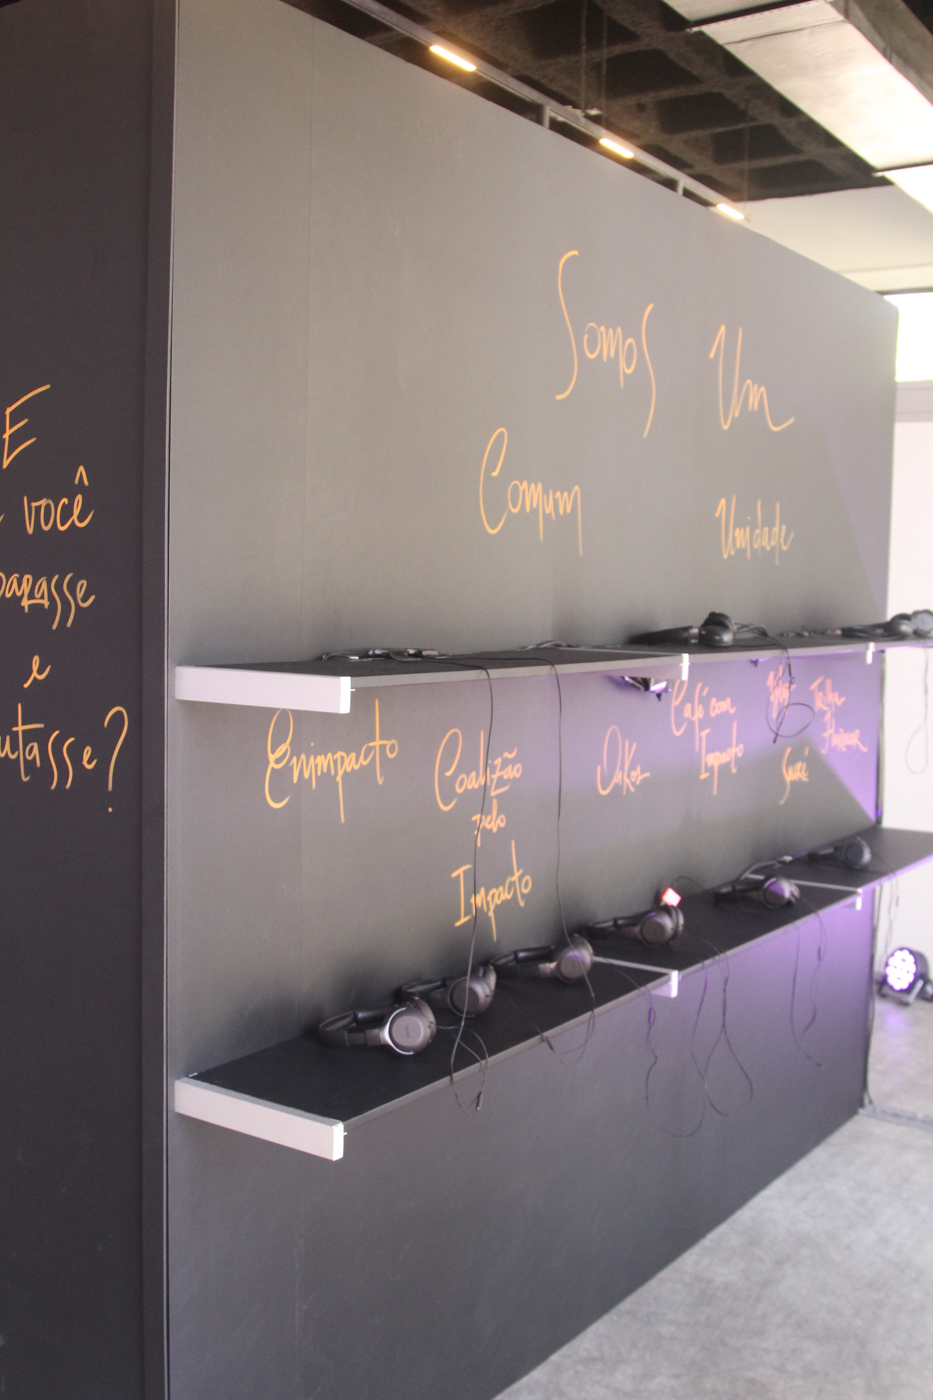 E
você
parasse
e
utasse?
Somos Um
Comum Unidade
Enimpacto
Coalizão
pelo
Impacto
Oikos
Café com
Impacto
Trilha